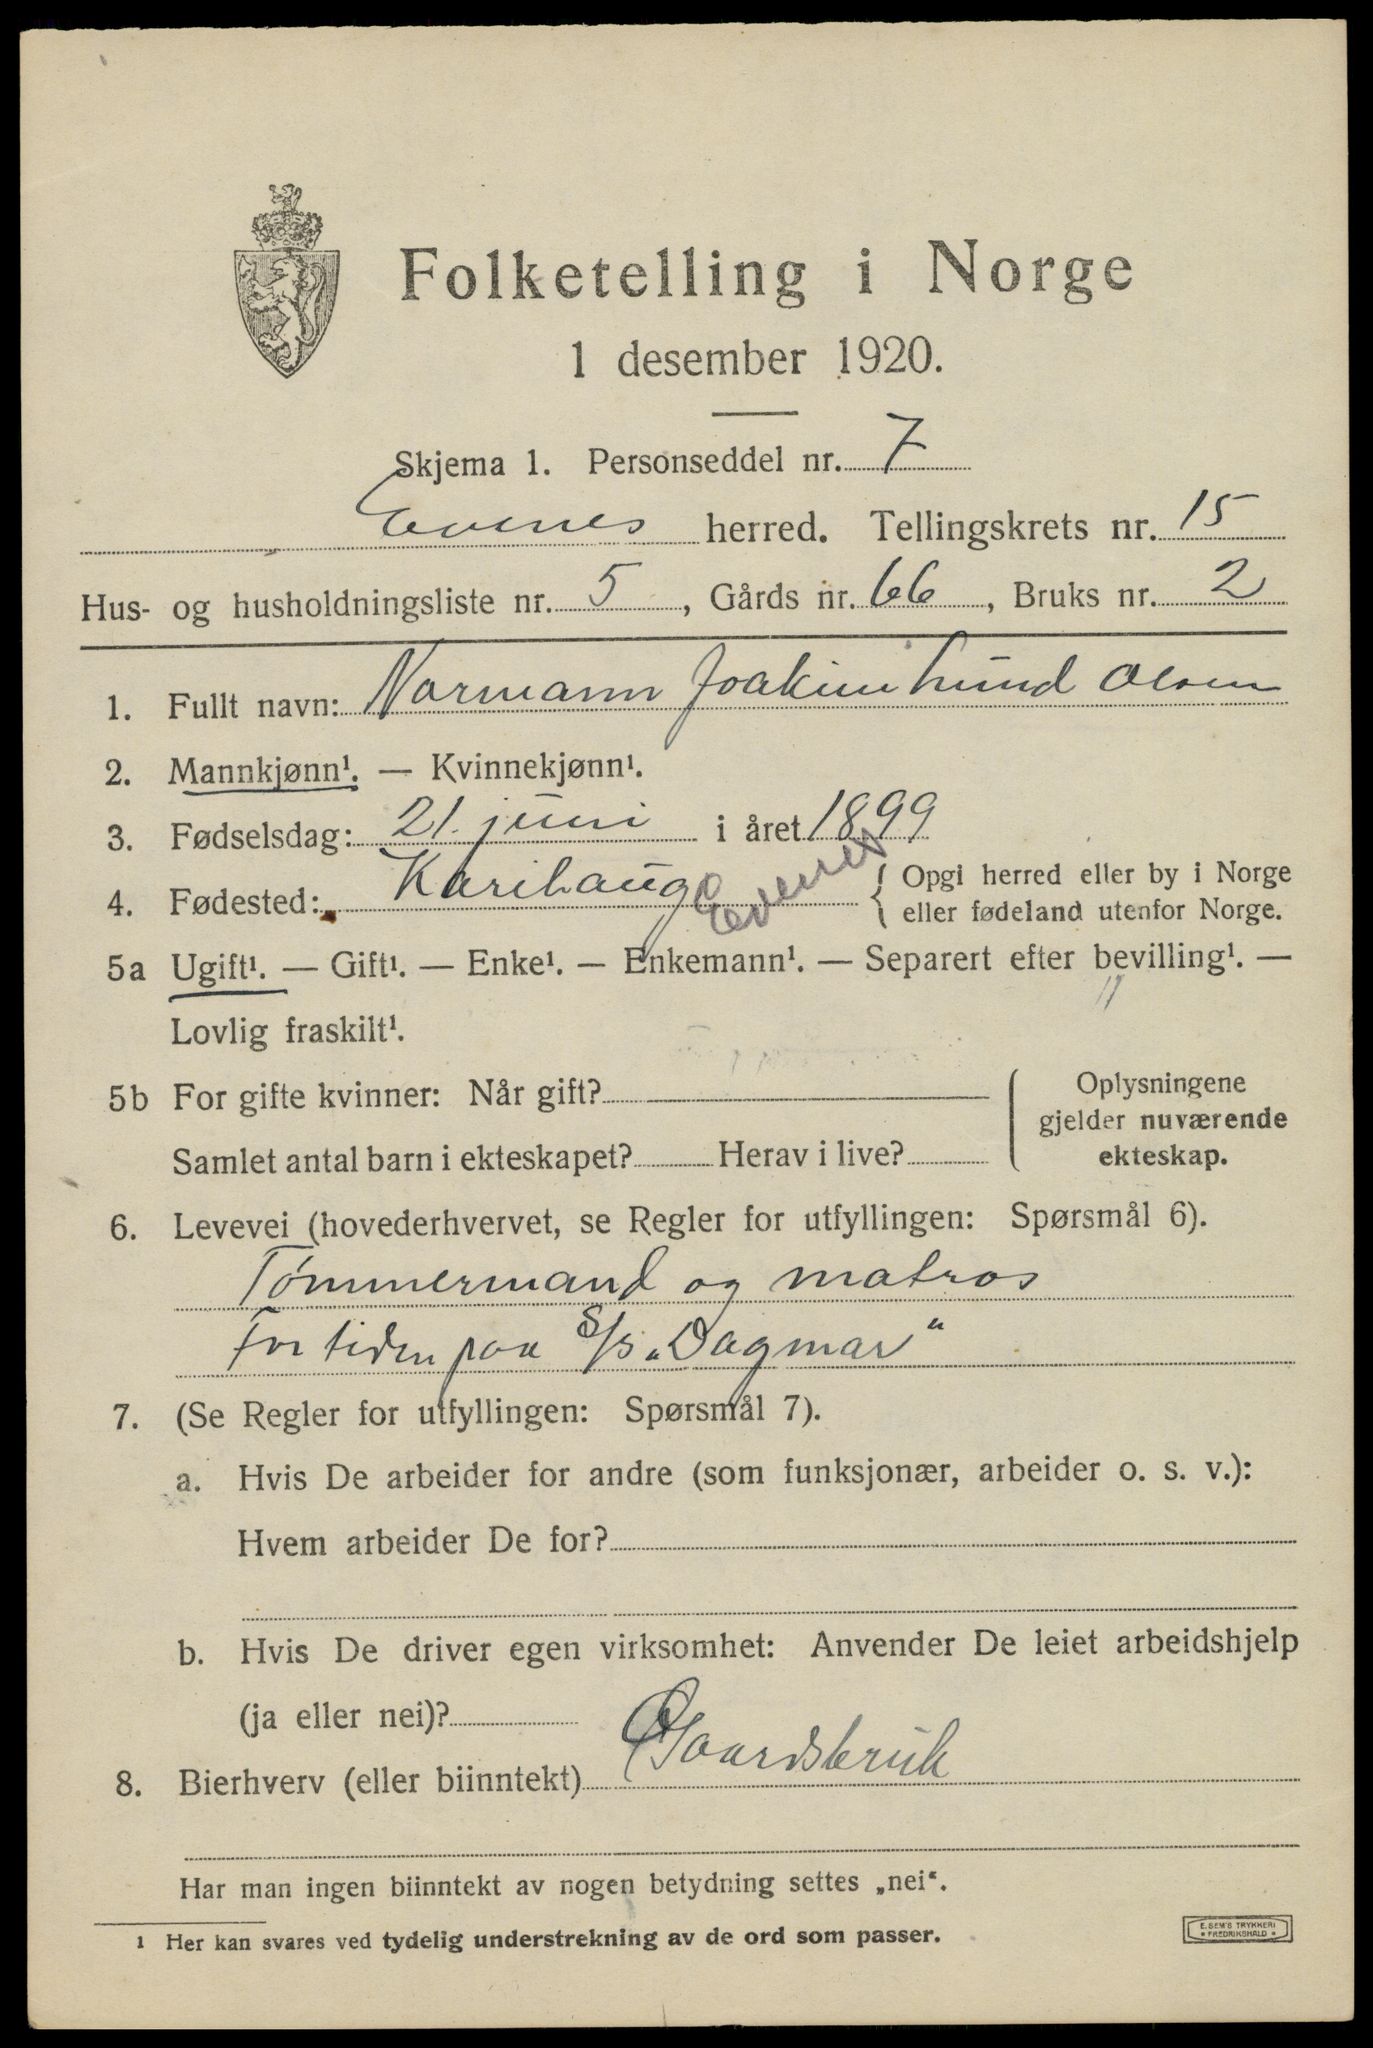 Folketelling i Norge
1 desember 1920.
Skjema 1. Personseddel nr. 7
Evenes herred. Tellingskrets nr. 15
Hus- og husholdningsliste nr. 5, Gårds nr. 66, Bruks nr. 2
1. Fullt navn: Normann Joakim Lund Olsen
2. Mannkjønn¹. — Kvinnekjønn¹.
3. Fødselsdag: 21. juni i året 1899
4. Fødested: Karihaug Evenes { Opgi herred eller by i Norge
eller fødeland utenfor Norge.
5a Ugift¹. — Gift¹. — Enke¹. — Enkemann¹. — Separert efter bevilling¹. —
Lovlig fraskilt¹.
5b For gifte kvinner: Når gift?
Samlet antal barn i ekteskapet? Herav i live?
Oplysningene
gjelder nuværende
ekteskap.
6. Levevei (hovederhvervet, se Regler for utfyllingen: Spørsmål 6).
Tømmermand og matros
For tiden paa S/S „Dagmar"
7. (Se Regler for utfyllingen: Spørsmål 7).
a. Hvis De arbeider for andre (som funksjonær, arbeider o. s. v.):
Hvem arbeider De for?
b. Hvis De driver egen virksomhet: Anvender De leiet arbeidshjelp
(ja eller nei)?
8. Bierhverv (eller biinntekt) Gaardsbruk
Har man ingen biinntekt av nogen betydning settes „nei“.
¹ Her kan svares ved tydelig understrekning av de ord som passer.
E. SEM'S TRYKKERI
FREDRIKSHALD